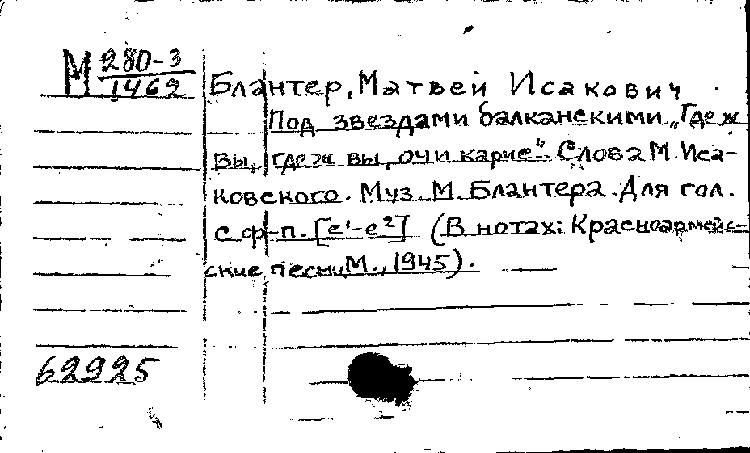 М 280-3
1462
Блантер, Матвей Исакович
Под звездами балканскими „Где ж
вы, где ж вы, очи карие". Слова М. Иса-
ковского. Муз. М. Блантера. Для гол.
с ф-п. [e¹-e²] (В нотах: Красноармейс-
ские песни, М., 1945).
62925